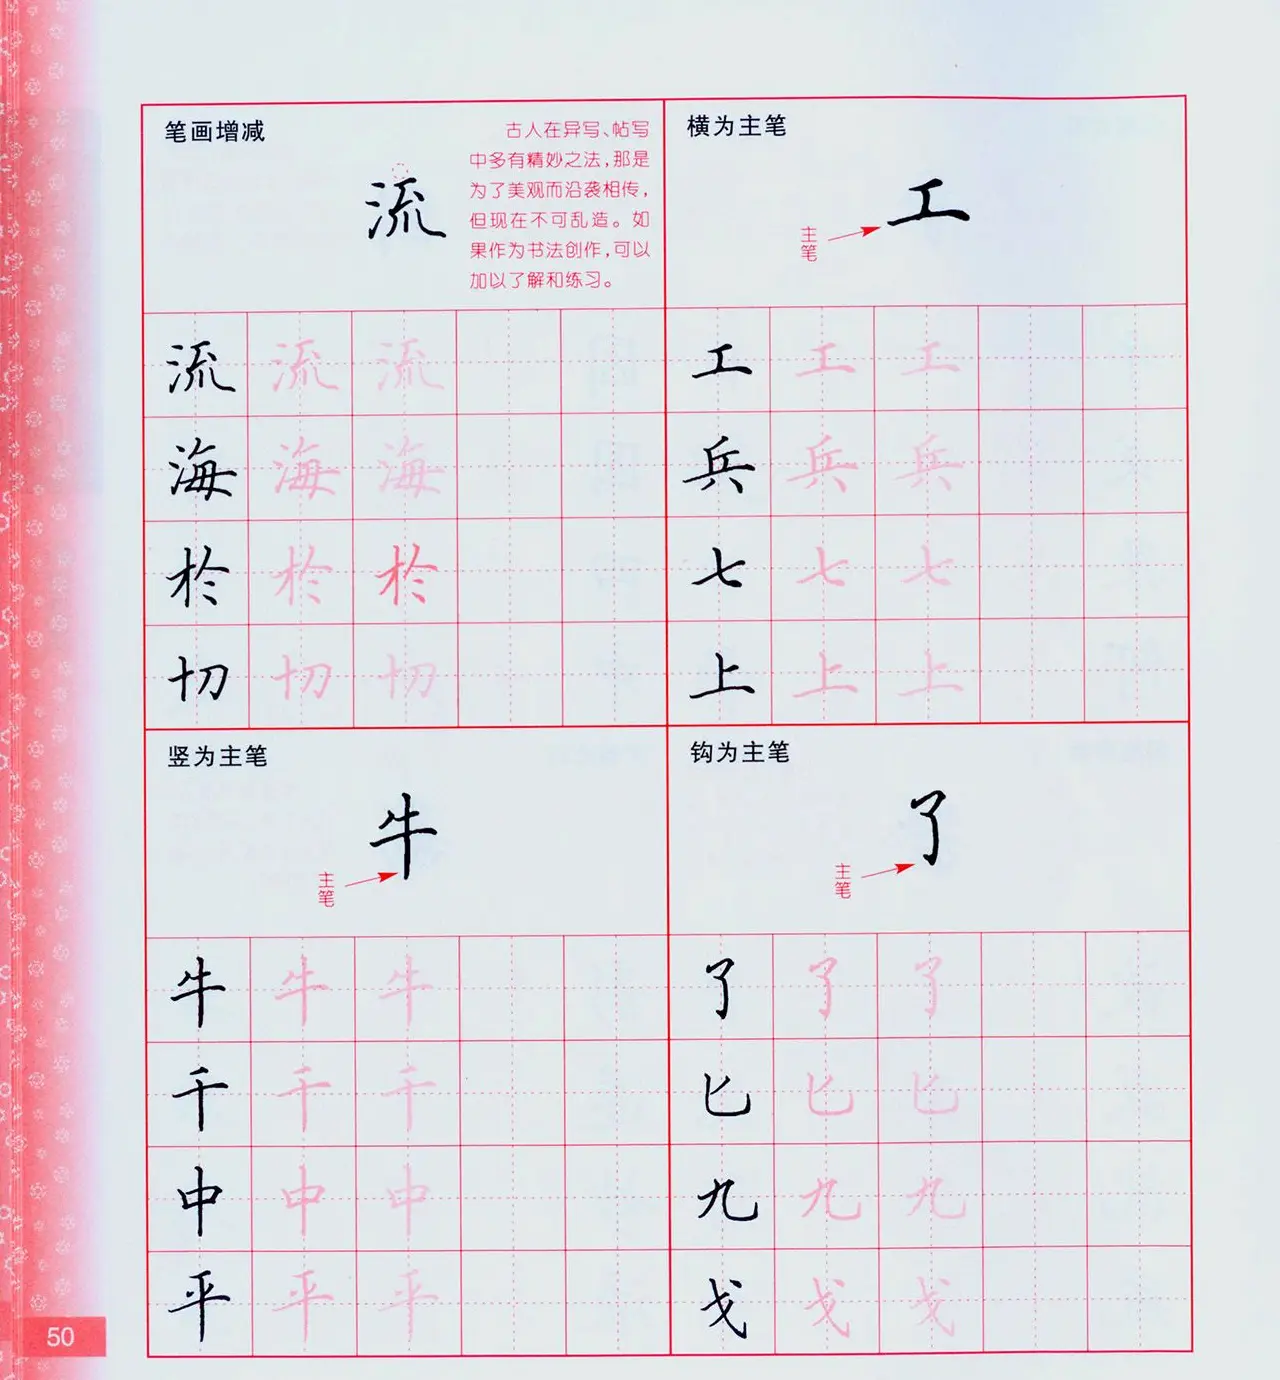 笔画增减
流
古人在异写、帖写
中多有精妙之法，那是
为了美观而沿袭相传，
但现在不可乱造。如
果作为书法创作，可以
加以了解和练习。
流 流 流
海 海 海
於 於 於
切 切 切
横为主笔
工
主笔
工 工 工
兵 兵 兵
七 七 七
上 上 上
竖为主笔
牛
主笔
牛 牛 牛
千 千 千
中 中 中
平 平 平
钩为主笔
了
主笔
了 了 了
匕 匕 匕
九 九 九
戈 戈 戈
50